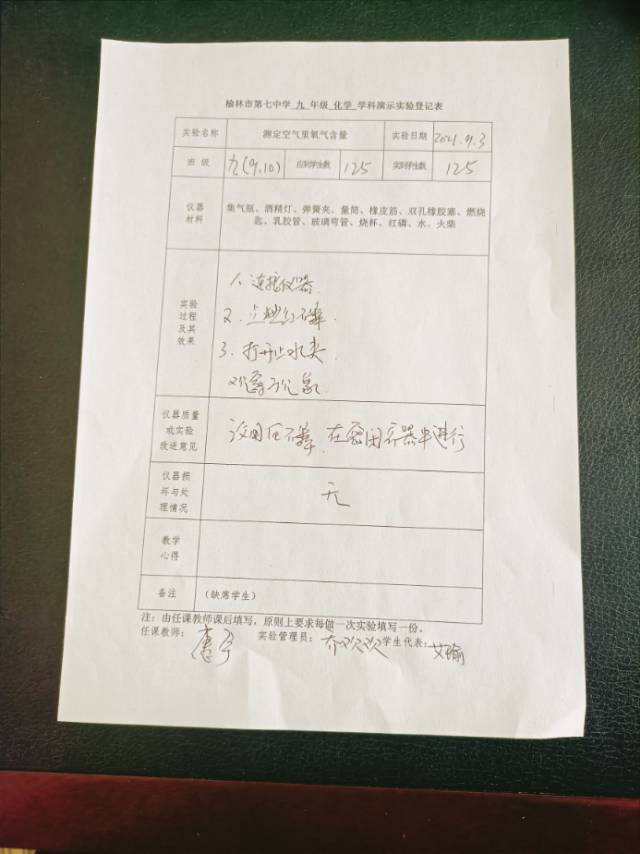 榆林市第七中学 九 年级 化学 学科演示实验登记表
实验名称 测定空气里氧气含量 实验日期 2021.9.3
班 级 九(9.10) 应到学生数 125 实到学生数 125
仪器
材料
集气瓶、酒精灯、弹簧夹、量筒、橡皮筋、双孔橡胶塞、燃烧
匙、乳胶管、玻璃弯管、烧杯、红磷、水、火柴
实验
过程
及其
效果
1、连接仪器.
2、点燃红磷.
3、打开止水夹
观察现象
仪器质量
或实验
改进意见
改用白磷、在密闭容器中进行
仪器损
坏与处
理情况
无
教学
心得
备注 (缺席学生)
注：由任课教师课后填写，原则上要求每做一次实验填写一份。
任课教师： 实验管理员： 乔欢欢 学生代表： 艾瑜